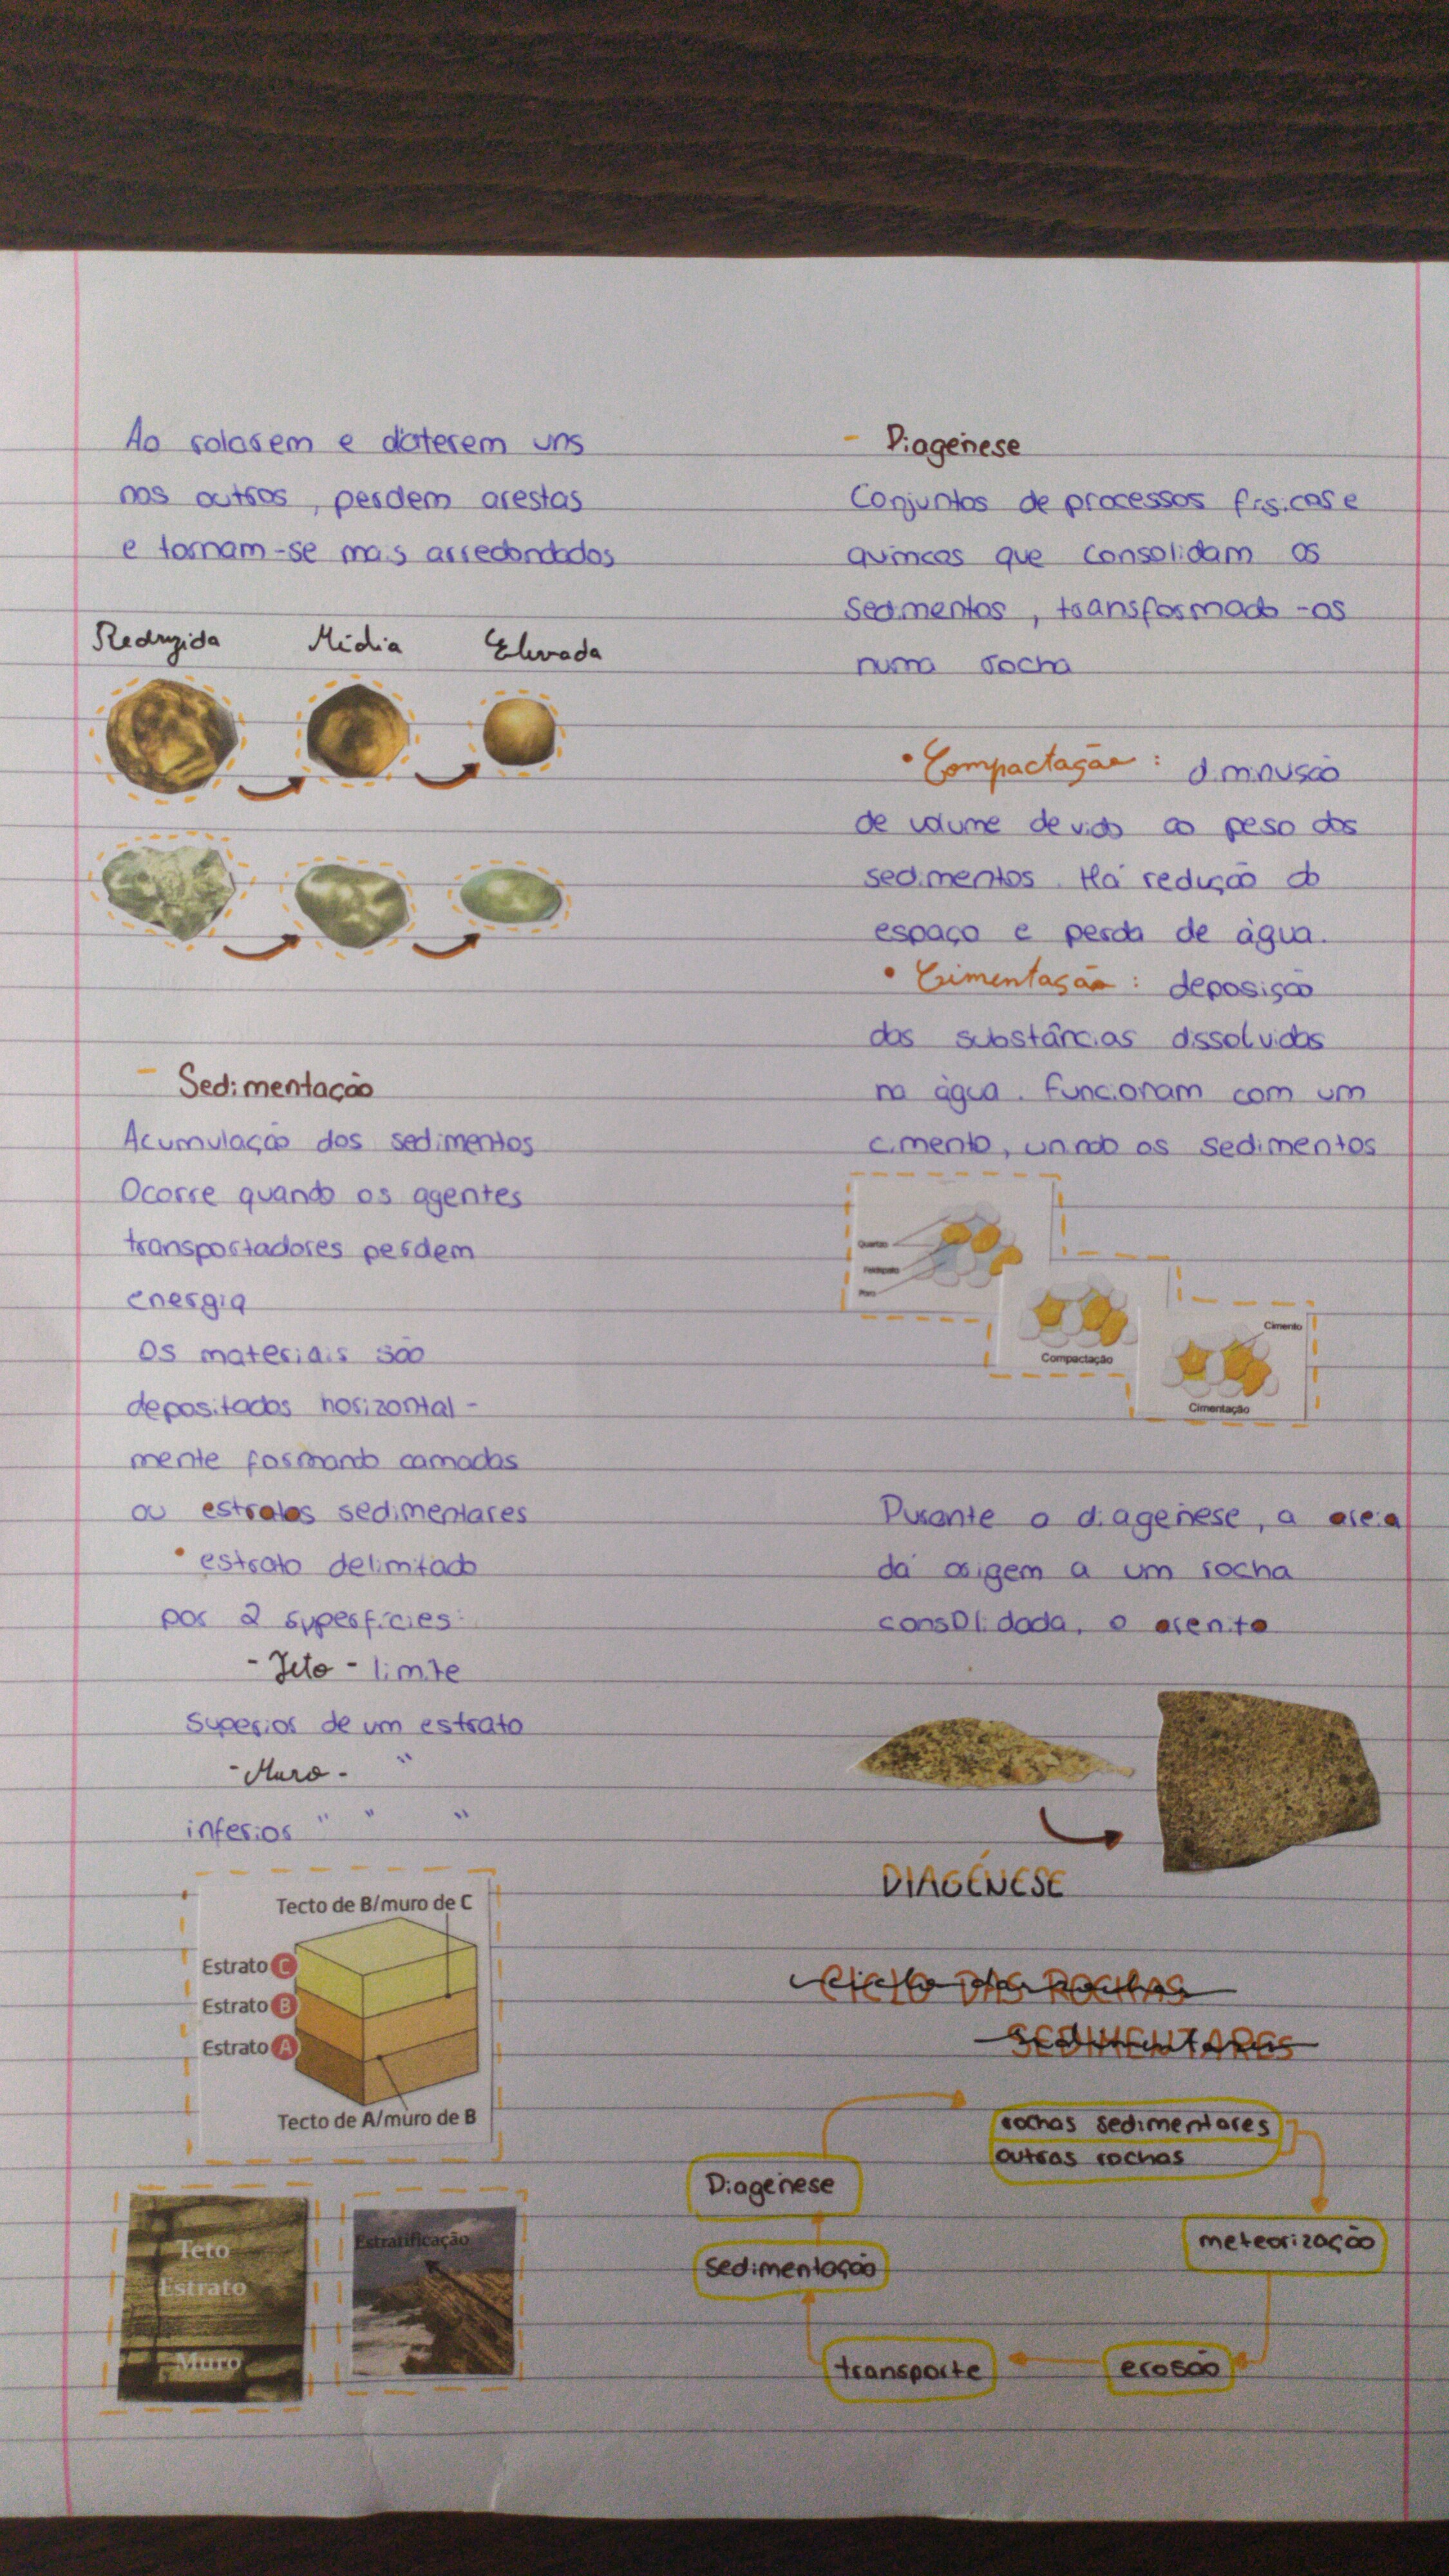 Ao rolarem e baterem uns
nos outros, perdem arestas
e tornam-se mais arredondados
Reduzida Média Elevada
- Sedimentação
Acumulação dos sedimentos
Ocorre quando os agentes
transportadores perdem
energia
Os materiais são
depositados horizontal-
mente formando camadas
ou estratos sedimentares
• estrato delimitado
por 2 superfícies:
- Teto - limite
superior de um estrato
- Muro - "
inferior " " "
Tecto de B/muro de C
Estrato C
Estrato B
Estrato A
Tecto de A/muro de B
Teto
Estrato
Muro
Estratificação
- Diagénese
Conjuntos de processos físicos e
químicos que consolidam os
sedimentos, transformado-os
numa rocha
• Compactação: diminuição
de volume devido ao peso dos
sedimentos. Há redução do
espaço e perda de água.
• Cimentação: deposição
das substâncias dissolvidas
na água. Funcionam com um
cimento, unindo os sedimentos
Quartzo
Feldspato
Poro
Compactação
Cimento
Cimentação
Durante a diagénese, a areia
dá origem a um rocha
consolidada, o arenito
DIAGÉNESE
CICLO DAS ROCHAS
SEDIMENTARES
rochas sedimentares
outras rochas
Diagénese
meteorização
Sedimentação
transporte
erosão